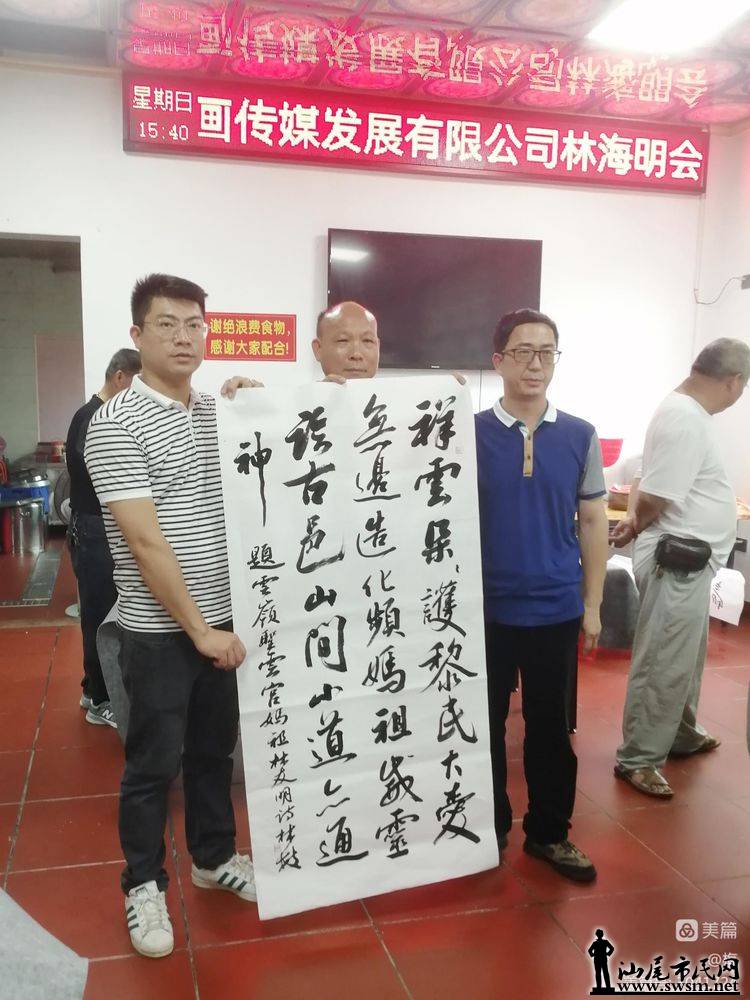 星期日
15:40
画传媒发展有限公司林海明会
谢绝浪费食物，
感谢大家配合!
祥雲朵〻護黎民大愛
無邊造化頻媽祖威靈
古邑山間小道亦通
神
題雲嶺聖雲宮媽祖林友明詩林
美篇
@梅
汕尾市民网
www.swsm.net